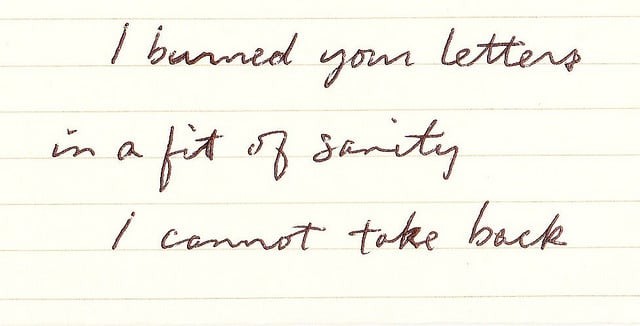 I burned your letters
in a fit of sanity
I cannot take back